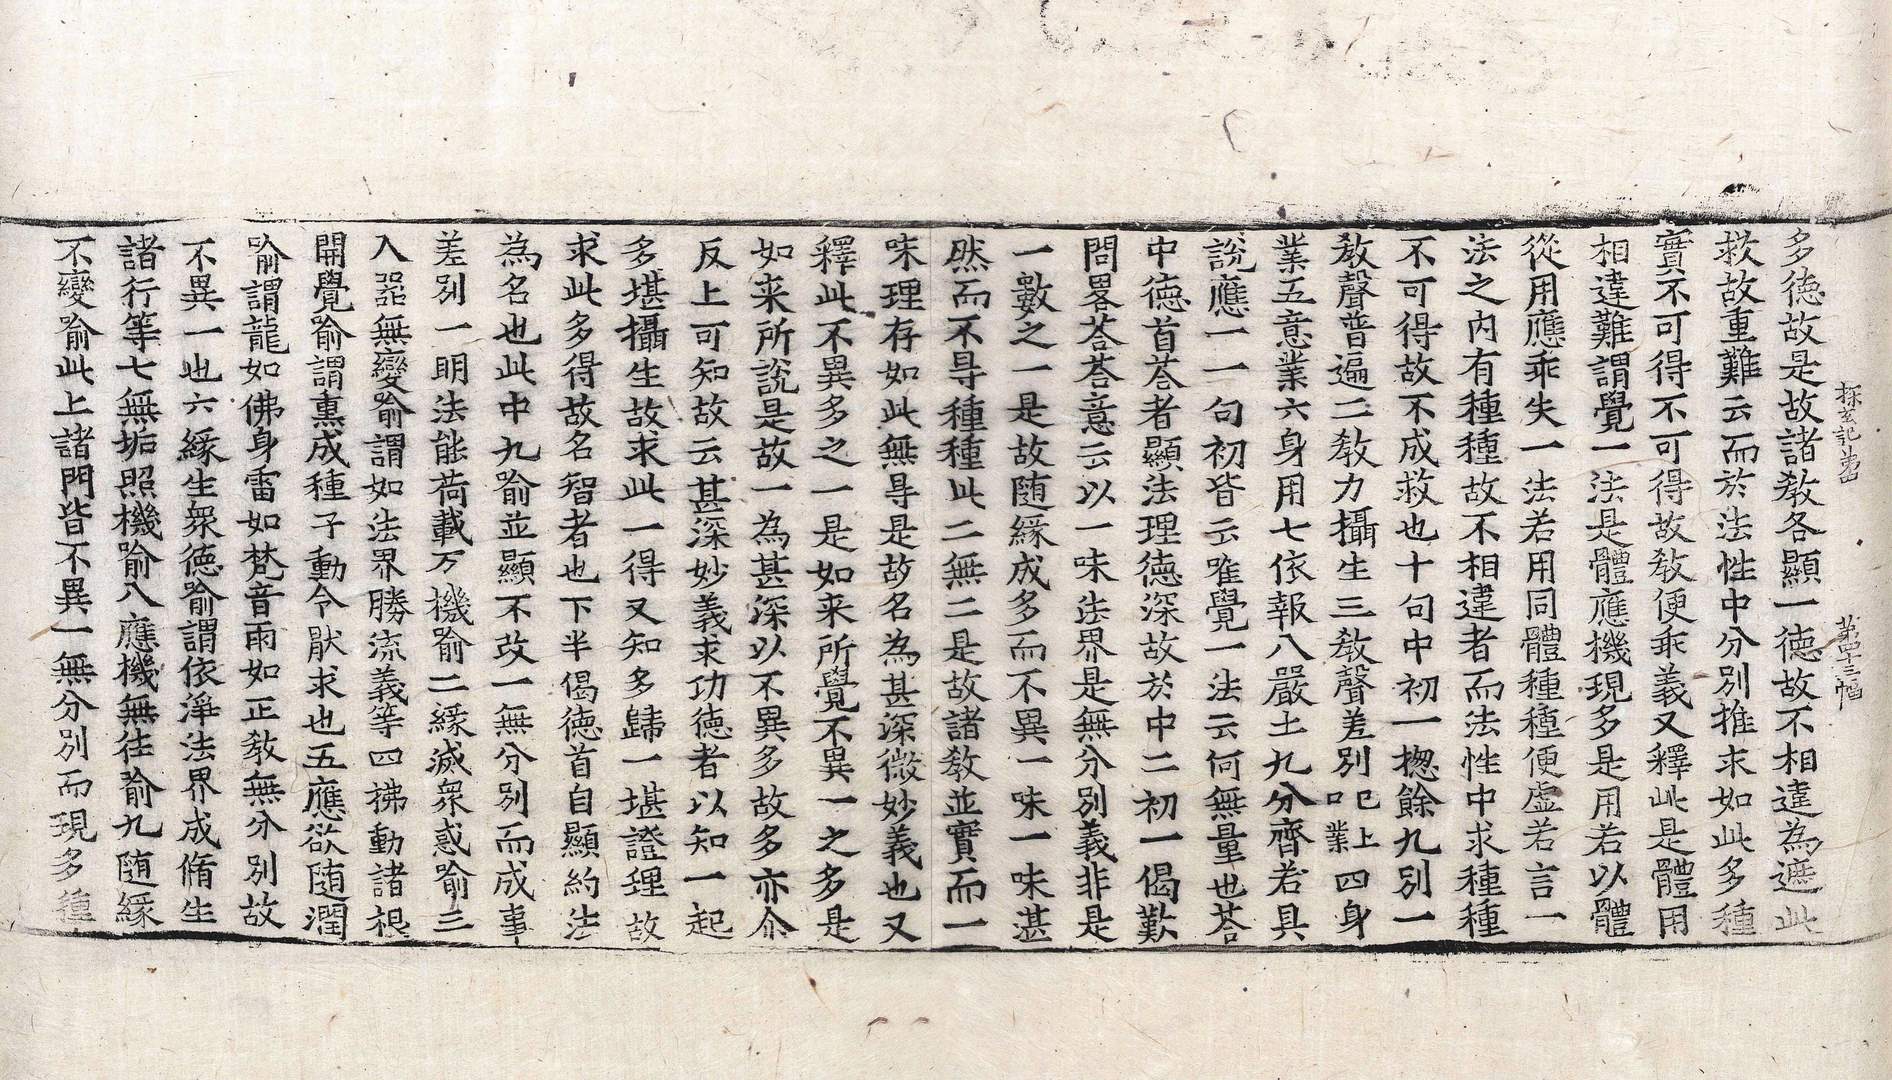 探玄記第四 第四十三幅
多德故是故諸教各顯一德故不相違為遮此
救故重難云而於法性中分別推求如此多種
實不可得不可得故教便乖義又釋此是體用
相違難謂覺一法是體應機現多是用若以體
從用應乖失一法若用同體種種便虛若言一
法之內有種種故不相違者而法性中求種種
不可得故不成救也十句中初一揔餘九別一
教聲普遍二教力攝生三教聲差別已上口業四身
業五意業六身用七依報八嚴土九分齊若具
說應一一句初皆云唯覺一法云何無量也荅
中德首荅者顯法理德深故於中二初一偈歎
問畧荅荅意云以一味法界是無分別義非是
一數之一是故随緣成多而不異一味一味湛
然而不㝵種種此二無二是故諸教並實而一
味理存如此無㝵是故名為甚深微妙義也又
釋此不異多之一是如来所覺不異一之多是
如来所說是故一為甚深以不異多故多亦尒
反上可知故云甚深妙義求功德者以知一起
多堪攝生故求此一得又知多歸一堪證理故
求此多得故名智者也下半偈德首自顯約法
為名也此中九喻並顯不改一無分別而成事
差別一明法能荷載万機喻二緣滅衆惑喻三
入㗊無變喻謂如法界勝流義等四拂動諸根
開覺喻謂熏成種子動令猒求也五應欲随潤
喻謂龍如佛身雷如梵音雨如正教無分別故
不異一也六緣生衆德喻謂依淨法界成脩生
諸行等七無垢照機喻八應機無往喻九随緣
不變喻此上諸門皆不異一無分別而現多種